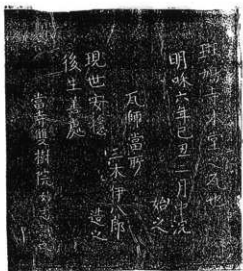 斑鳩寺本堂之瓦也
明咊六年己丑二月中浣
始之
瓦師當所
三木伊八郎
造之
現世安穏
後生善處
當寺雙樹院